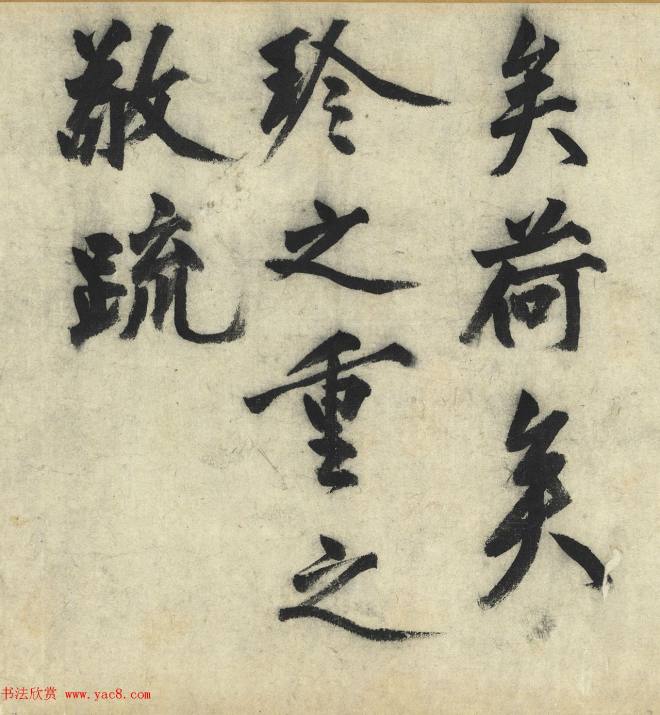 矣荷矣
珍之重之
敬疏
书法欣赏 www.yac8.com